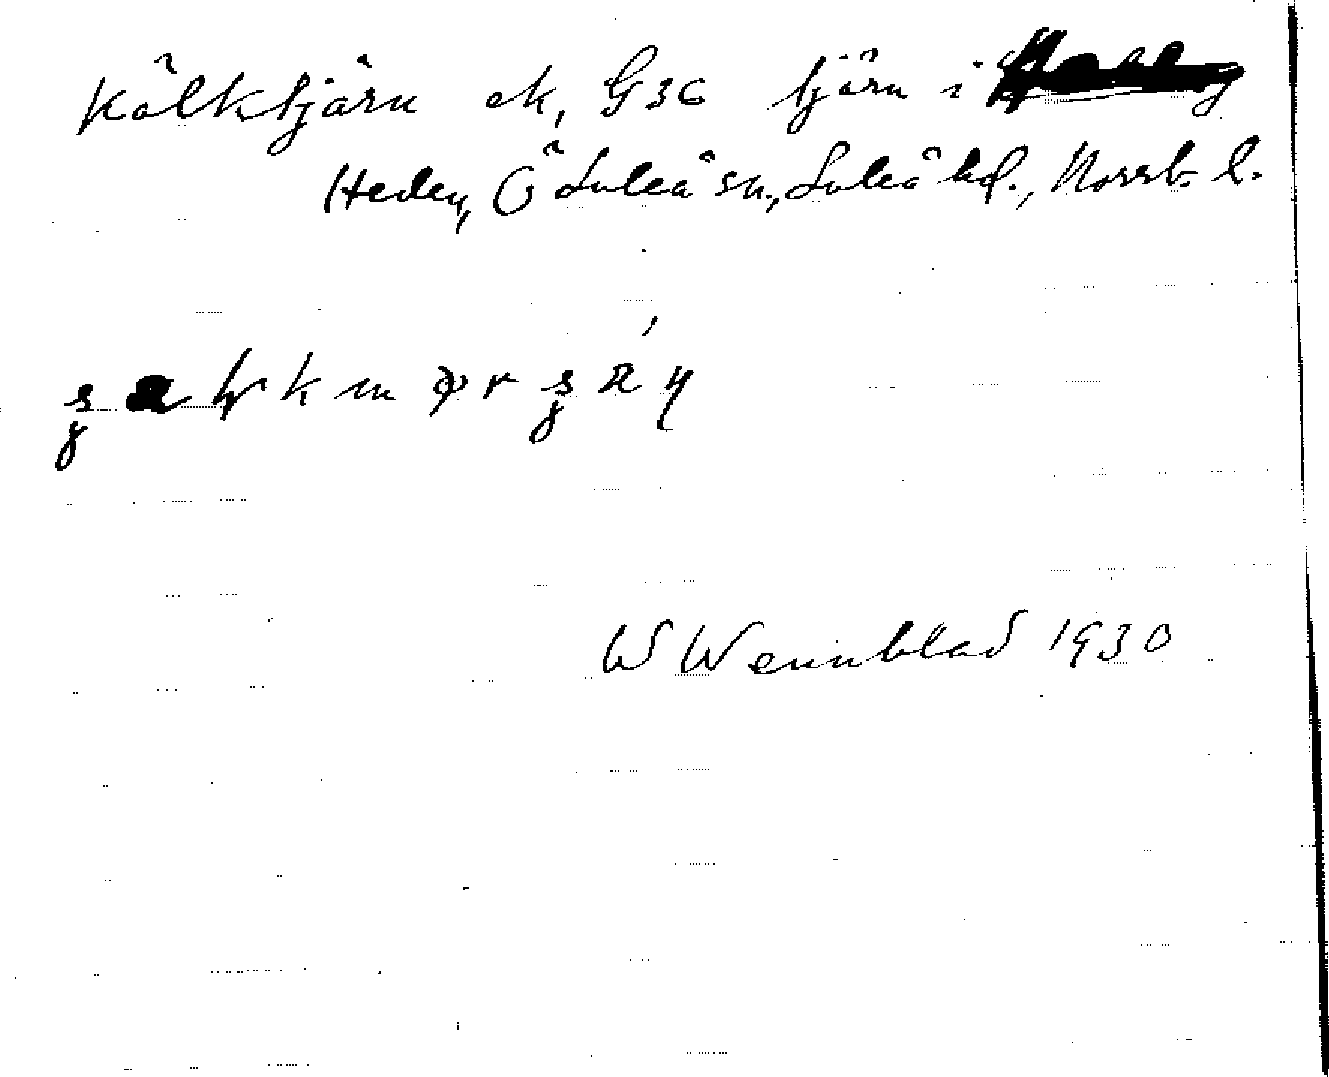 Kälktjärn ek, G36 tjärn i
Heden, Ö Luleå sn., Luleå hd., Norrb. l.
W Wennblad 1930